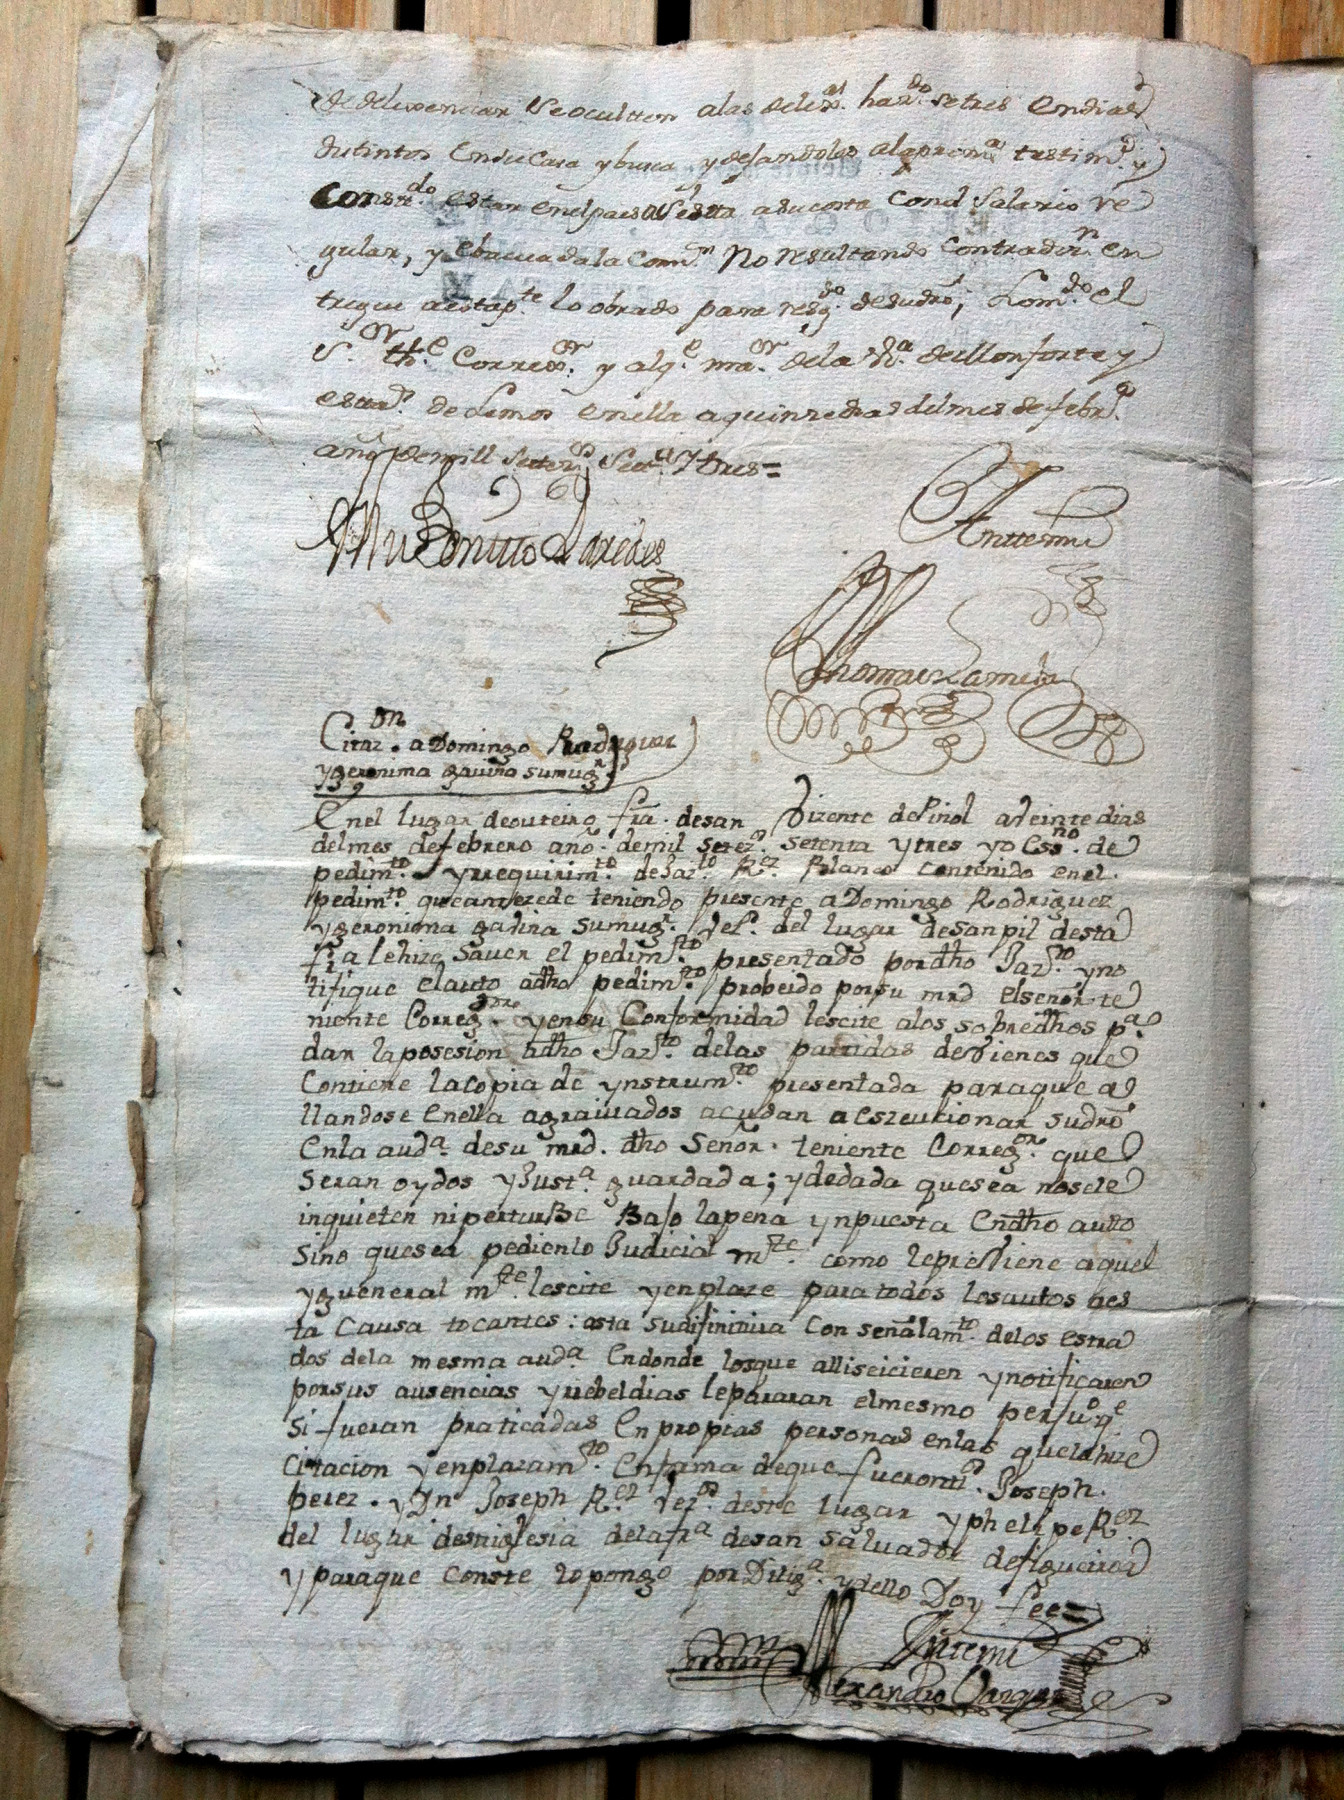 de delixencias Se ocultten a las delix.as haz.do se tres en dias
distintos en su Casa y busca y dejandoles a la prim.a testim.o y
Const.do estar en el paes a Vesttta a su costa Con el Salario re
gular, y ebacuada la Com.n No resultando contradiz.n en
tregue a esta p.te lo obrado para resg.do de su dro; Lo m.do el
S.or th.e Correx.or y alq.e ma.or de la V.a de Monforte y
estado de Lemos en ella a quinze dias del mes de febr.o
año de mill Setez.s Set.a Y tres=
Anttemi
Thomas Lamela
Citaz.on a Domingo Rodriguez
y geronima gaviña su mug.r
En el lugar de outeiro fra. de san Vizente de Piñol a Veinte dias
del mes de febrero año. de mil setez.s setenta y tres yo Ess.no de
pedim.to y rrequirim.to de Jaz.to R.ez Blanco contenido en el.
pedim.to que antezede teniendo presente a Domingo Rodriguez
y geronima gaviña su mug.r Vez.s del lugar de Sanpil desta
fra le hize saver el pedim.to presentado por dho Jaz.to y no
tifique el auto a dho pedim.to probeido por su mrd el señor te
niente Correg.or y en su Conformidad les cite a los sobredhos p.a
dar la posesion a dho Jaz.to de las partidas de Vienes que
Contiene la copia de ynstrum.to presentada para que a
llandose en ella agraivados acudan a eszeucionar su dro
En la aud.a de su mrd. dho Señor. teniente Correg.or que
seran oydos y Just.a guardada; y de dada que sea no se le
inquieten ni perturbe Bajo la pena ynpuesta En dho autto
Sino que sea pediento Judicial m.te como le previene aquel
y gueneral m.te les cite y enplaze para todos los autos aes
ta Causa tocantes: asta su difinitiva con señalam.to de los estra
dos de la mesma aud.a En donde los que alli se icieren y notificaren
por sus ausencias y rrebeldias le pararan el mesmo perju.o q.e
si fueran praticadas En propias personas en las que le hize
Citacion y enplazam.to En forma de que fueron t.os Joseph.
perez. y Dn Joseph R.ez Vez.os deste lugar y phelipe R.ez
del lugar desriglesia de la fra de san Salvador de figueiroa
y para que Conste lo pongo por Dilig.a y dello Doy fee=
Antemi
Alexandro Vazquez